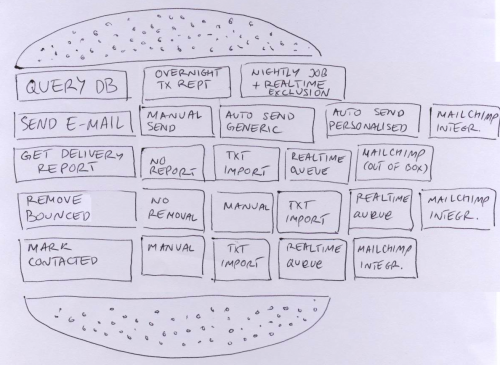 QUERY DB
OVERNIGHT
TX REPT
NIGHTLY JOB
+ REALTIME
EXCLUSION
SEND E-MAIL
MANUAL
SEND
AUTO SEND
GENERIC
AUTO SEND
PERSONALISED
MAILCHIMP
INTEGR.
GET DELIVERY
REPORT
NO
REPORT
TXT
IMPORT
REALTIME
QUEUE
MAILCHIMP
(OUT OF BOX)
REMOVE
BOUNCED
NO
REMOVAL
MANUAL
TXT
IMPORT
REALTIME
QUEUE
MAILCHIMP
INTEGR.
MARK
CONTACTED
MANUAL
TXT
IMPORT
REALTIME
QUEUE
MAILCHIMP
INTEGR.